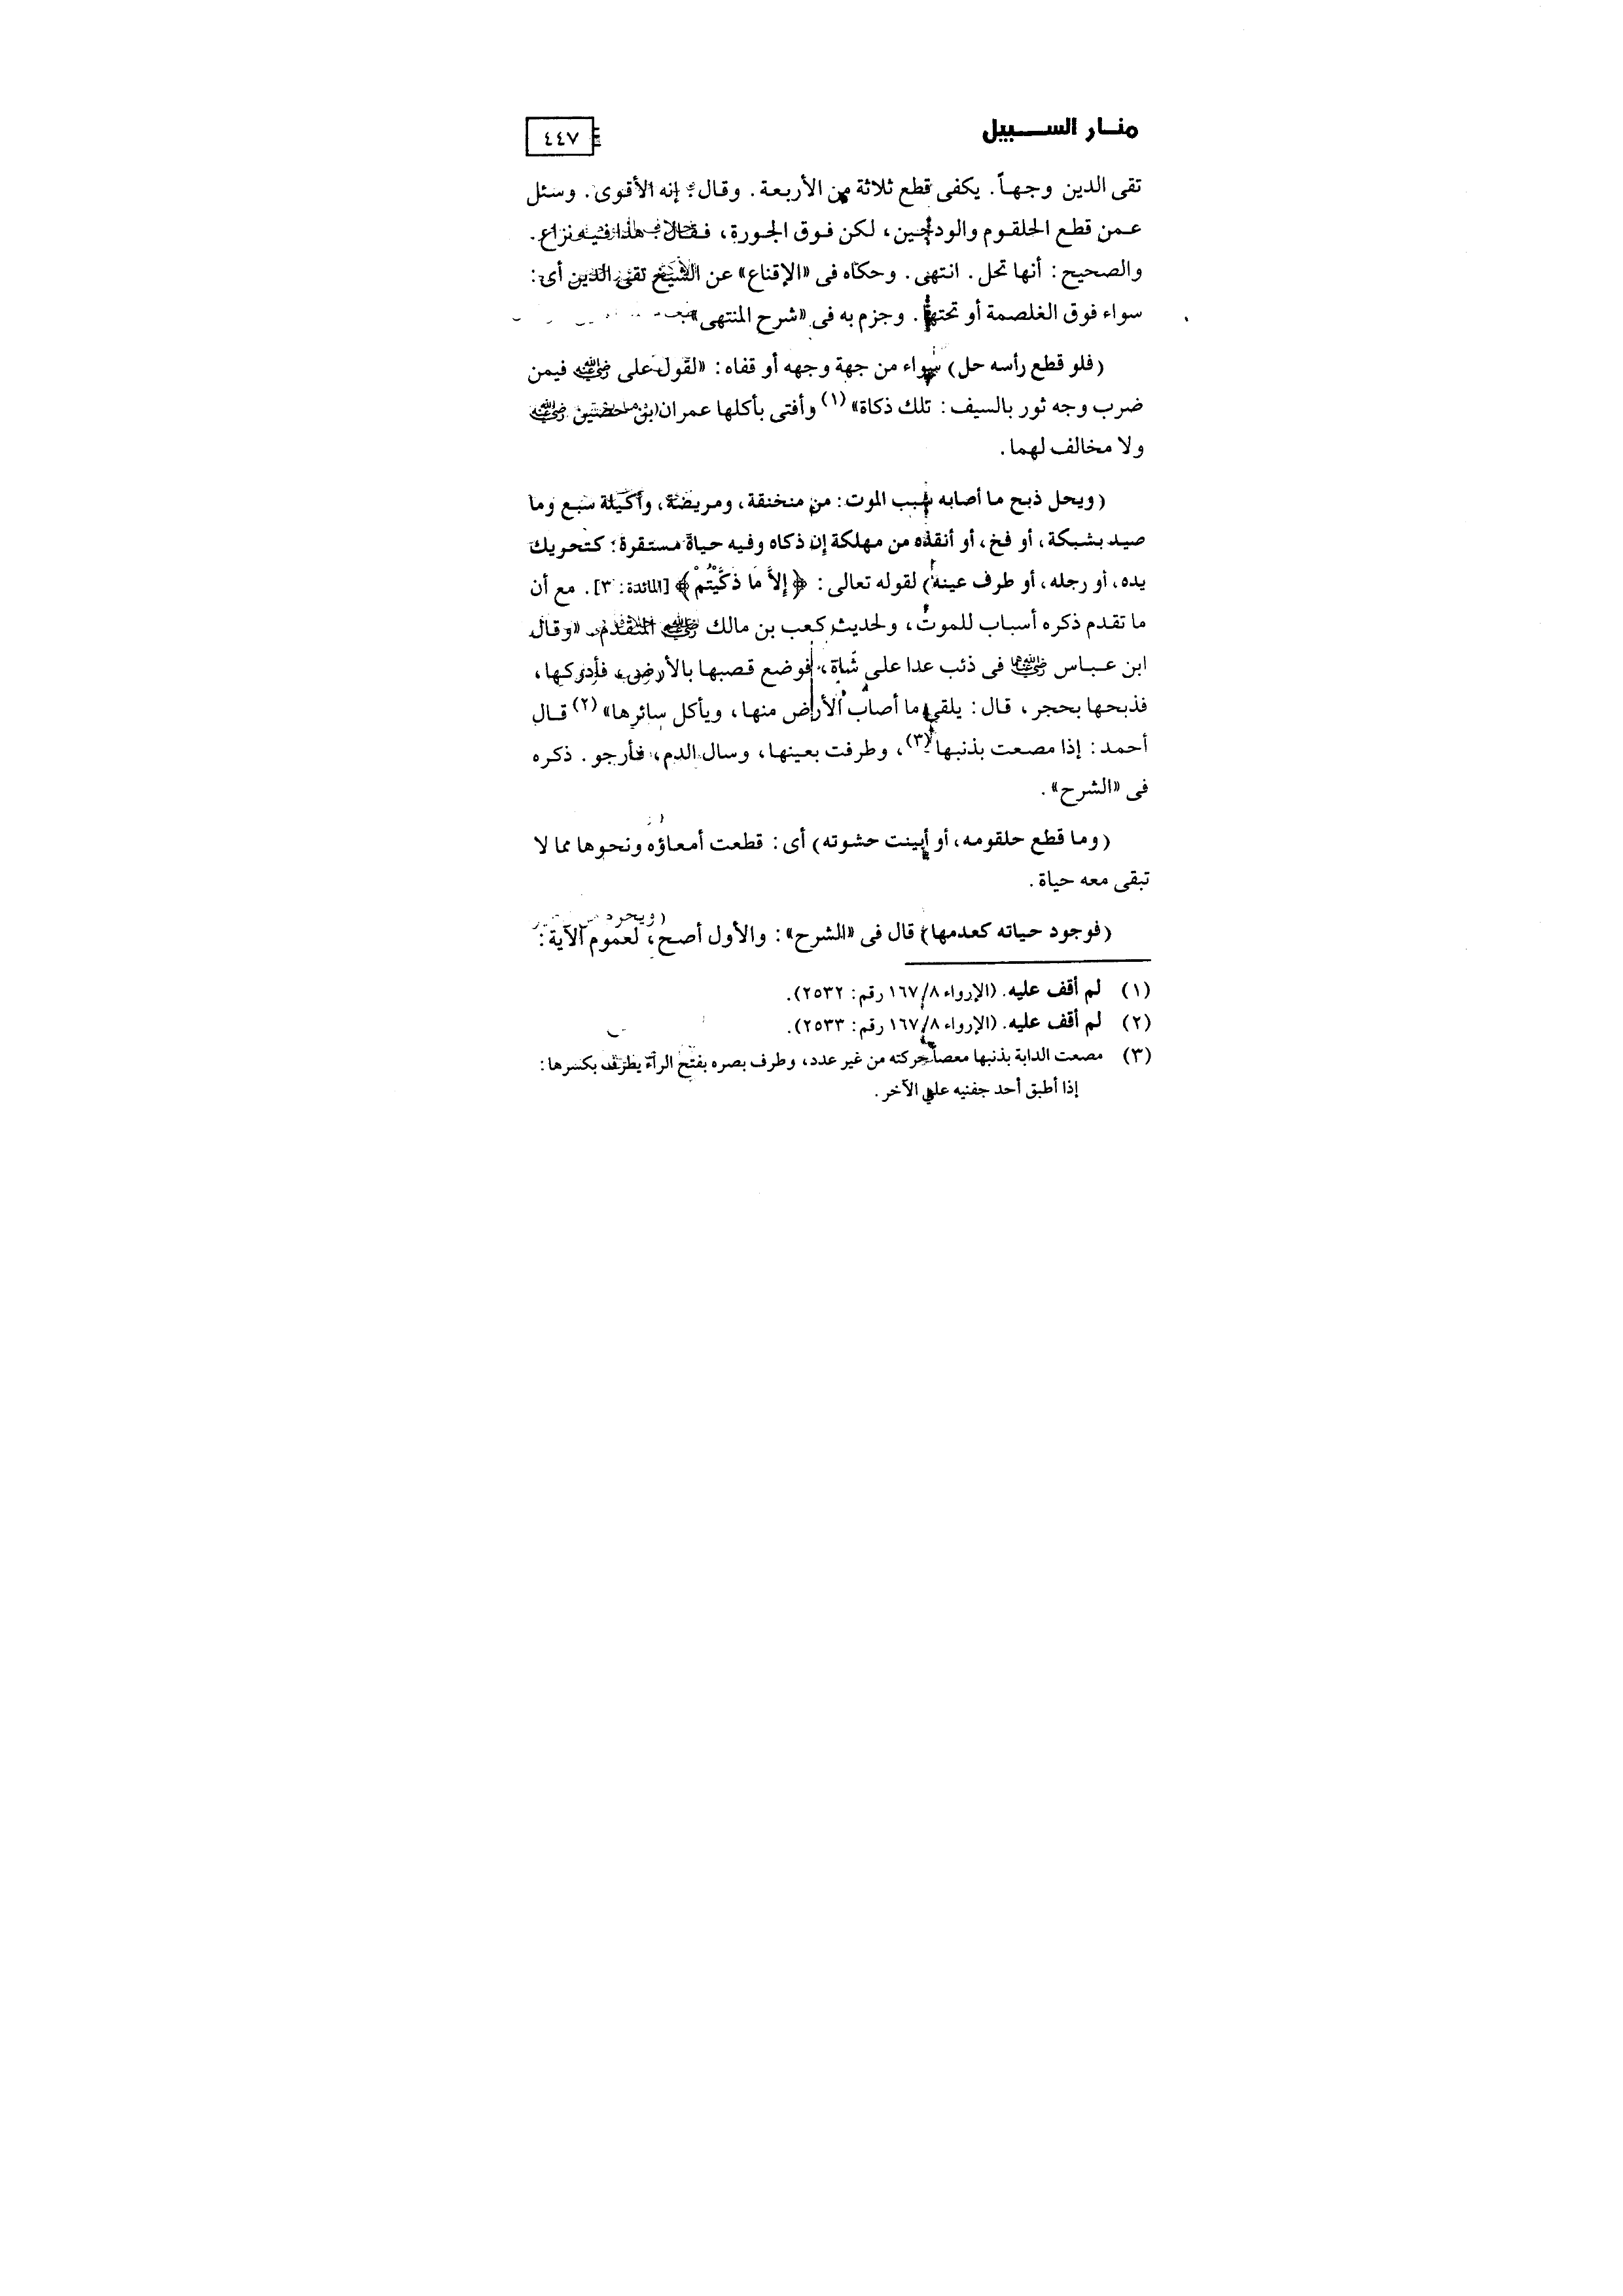 منار السبيل
٤٤٧
تقى الدين وجهاً. يكفى قطع ثلاثة من الأربعة. وقال: إنه الأقوى. وسئل
عمن قطع الحلقوم والودجين، لكن فوق الجورة، فقال: هذا فيه نزاع.
والصحيح: أنها تحل. انتهى. وحكاه فى «الإقناع» عن الشيخ تقى الدين أى:
سواء فوق الغلصمة أو تحتها. وجزم به فى «شرح المنتهى»
(فلو قطع رأسه حل) سواء من جهة وجهه أو قفاه: «لقول على رضي الله عنه فيمن
ضرب وجه ثور بالسيف: تلك ذكاة» (١) وأفتى بأكلها عمران بن حصين رضي الله عنه
ولا مخالف لهما.
(ويحل ذبح ما أصابه سبب الموت: من منخنقة، ومريضة، وأكيلة سبع وما
صيد بشبكة، أو فخ، أو أنقذه من مهلكة إن ذكاه وفيه حياة مستقرة: كتحريك
يده، أو رجله، أو طرف عينه) لقوله تعالى: ﴿إِلاَّ مَا ذَكَّيْتُمْ﴾ [المائدة: ٣]. مع أن
ما تقدم ذكره أسباب للموت، ولحديث كعب بن مالك رضي الله عنه المتقدم. «وقال
ابن عباس رضي الله عنهما فى ذئب عدا على شاة، فوضع قصبها بالأرض، فأدركها،
فذبحها بحجر، قال: يلقى ما أصاب الأرض منها، ويأكل سائرها» (٢) قال
أحمد: إذا مصعت بذنبها (٣)، وطرفت بعينها، وسال الدم، فأرجو. ذكره
فى «الشرح».
(وما قطع حلقومه، أو أبينت حشوته) أى: قطعت أمعاؤه ونحوها مما لا
تبقى معه حياة.
(فوجود حياته كعدمها) قال فى «الشرح»: والأول أصح، لعموم الآية:
(١) لم أقف عليه. (الإرواء ١٦٧/٨ رقم: ٢٥٣٢).
(٢) لم أقف عليه. (الإرواء ١٦٧/٨ رقم: ٢٥٣٣).
(٣) مصعت الدابة بذنبها معصاً حركته من غير عدد، وطرف بصره بفتح الراء يطرف بكسرها:
إذا أطبق أحد جفنيه على الآخر.